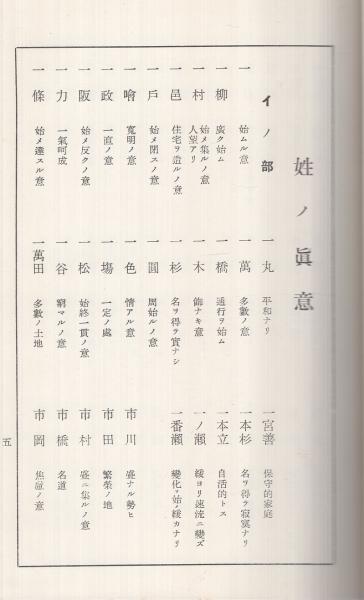 姓ノ眞意
イノ部
一 始ムル意
一柳 廣ク始ム
一村 始メ集ルノ意
人望アリ
一邑 住宅ヲ造ルノ意
一戶 始メ閉スノ意
一噲 寬明ノ意
一政 一直ノ意
一阪 始メ反クノ意
一力 一氣呵成
一條 始メ達スル意
一丸 平和ナリ
一萬 多數ノ意
一橋 通行ヲ始ム
一木 飾ナキ意
一杉 名ヲ得テ實ナシ
一圓 周始ルノ意
一色 情アル意
一塲 一定ノ處
一松 始終一貫ノ意
一谷 窮マルノ意
一萬田 多數ノ土地
一宮善 保守的家庭
一本杉 名ヲ得テ寂寞ナリ
一本立 自活的トス
一ノ瀨 緩ヨリ速流ニ變ズ
一番瀨 變化ヲ始メ緩カナリ
市川 盛ナル勢ヒ
市田 繁榮ノ地
市村 盛ニ集ルノ意
市橋 名道
市岡 ノ意
五